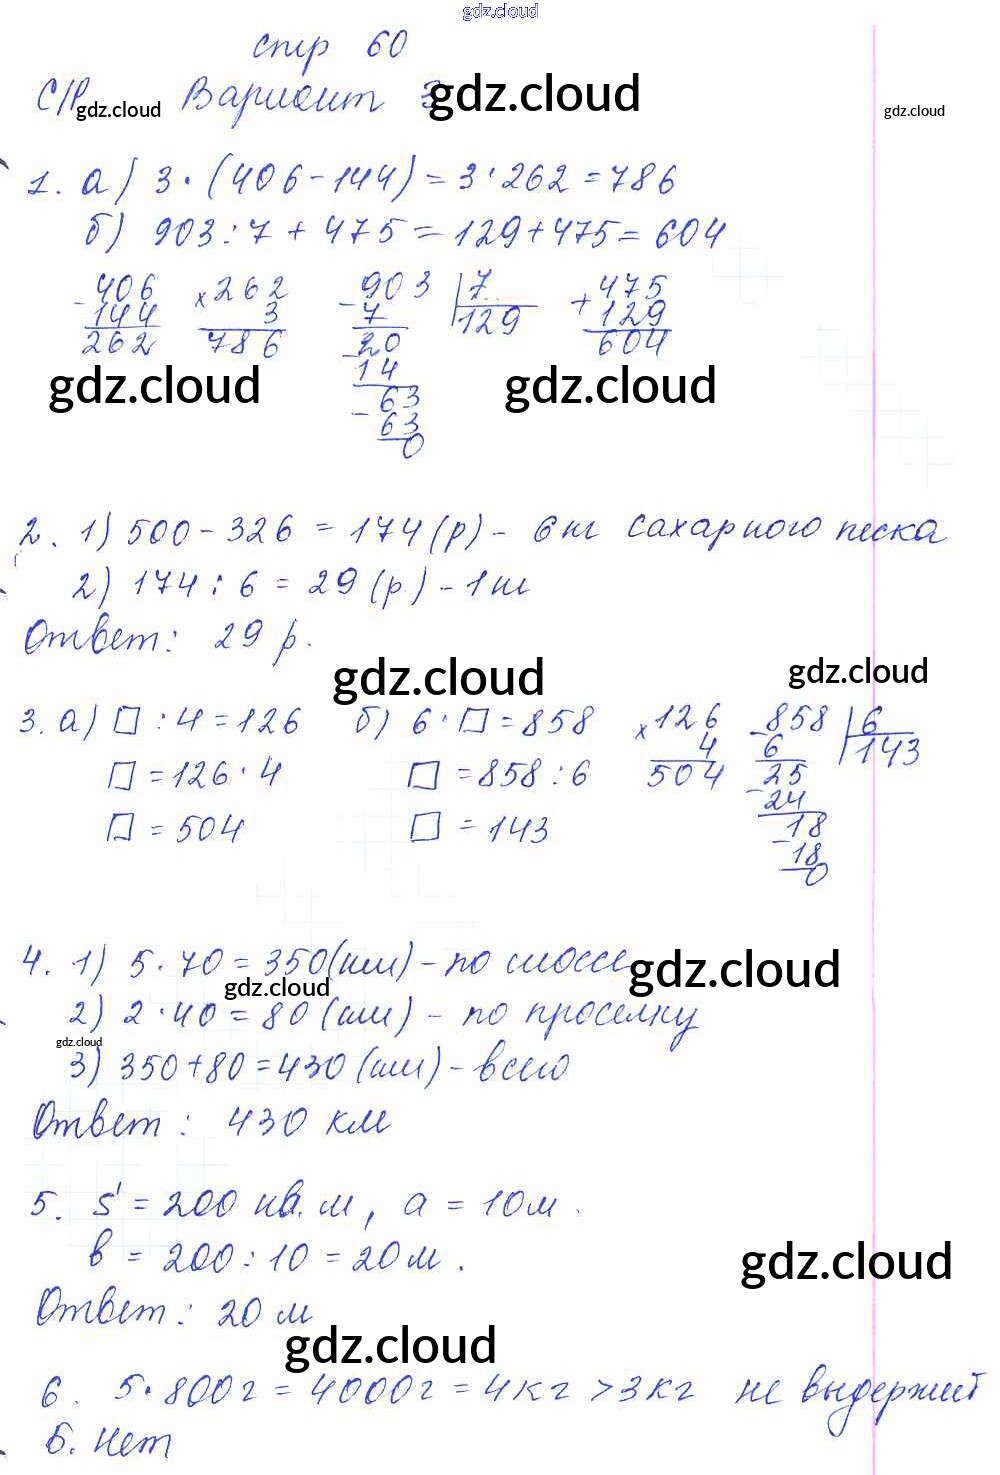 gdz.cloud
стр 60
С/Р gdz.cloud Вариант 3 gdz.cloud gdz.cloud
1. а) 3·(406-144)=3·262=786
б) 903:7+475=129+475=604
-406 ×262 -903 |7 +475
144 3 7 129 129
262 786 -20 604
14
gdz.cloud gdz.cloud
63
-63
0
2. 1) 500-326=174(р)- 6 пг сахарного песка
2) 174:6=29(р.)-1ш
Ответ: 29 р.
gdz.cloud gdz.cloud
3. а) □:4=126 б) 6·□=858 ×126 -858 |6
□=126·4 □=858:6 4 6 143
□=504 □=143 504 25
-24
18
-18
0
4. 1) 5·70=350(км)-по шоссе gdz.cloud
gdz.cloud
2) 2·40=80(км)-по проселку
gdz.cloud
3) 350+80=430(км)-всего
Ответ: 430 км
5. S=200 кв.м, а=10м.
в=200:10=20м.
gdz.cloud
Ответ: 20 м
gdz.cloud
6. 5·800г=4000г=4кг>3кг не выдержит
Б. Нет